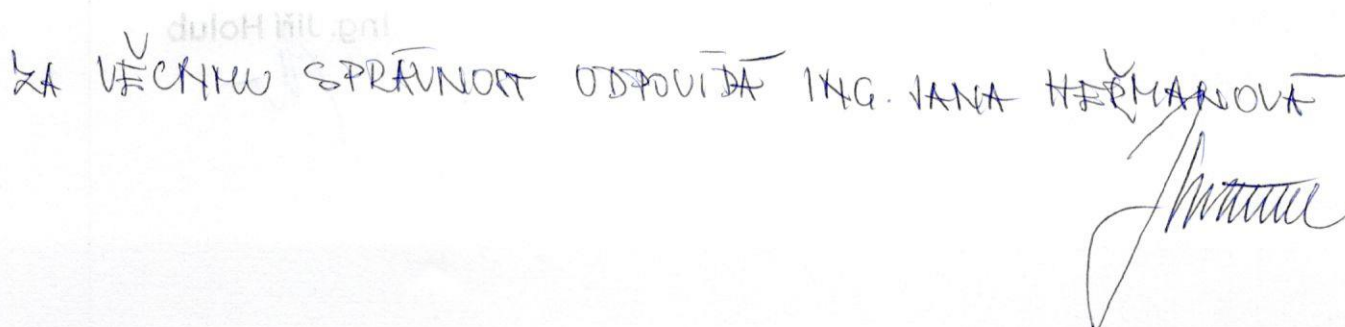 Ing. Jiří Holub
ZA VĚCNOU SPRÁVNOST ODPOVÍDÁ ING. JANA HEŘMANOVÁ